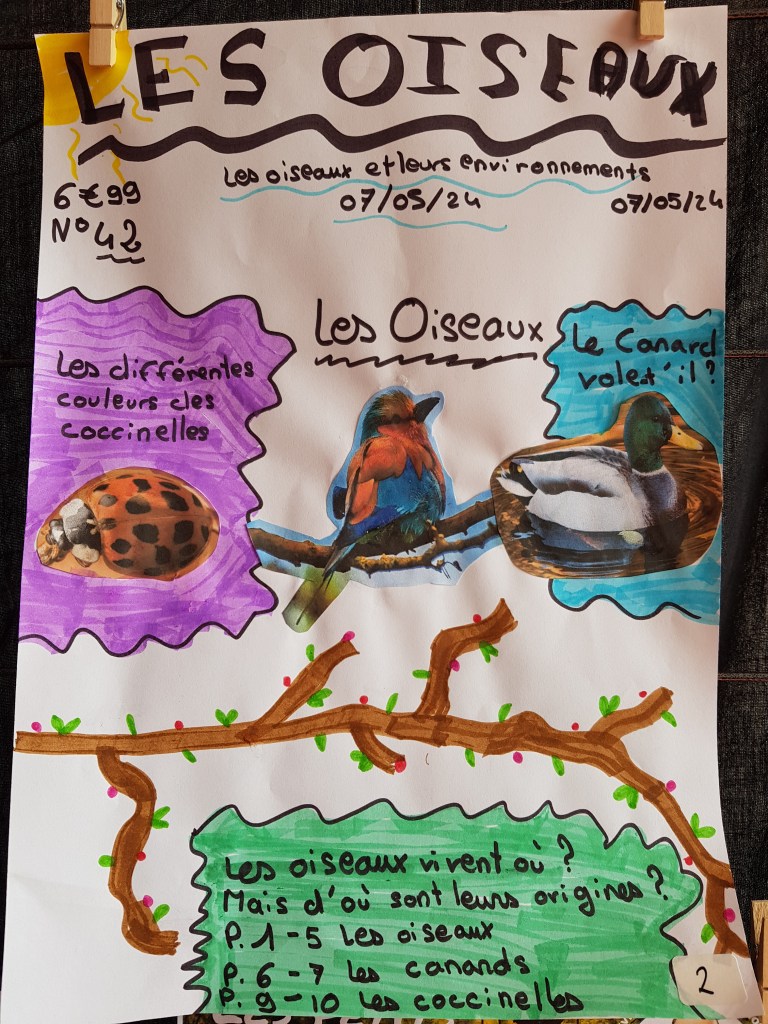 LES OISEAUX
Les oiseaux et leurs environnements
07/05/24
07/05/24
6€99
N°42
Les Oiseaux
Les différentes
couleurs des
coccinelles
Le Canard
volest'il?
Les oiseaux vivent où ?
Mais d'où sont leurs origines ?
P.1-5 Les oiseaux
P.6-7 Les canards
P.9-10 Les coccinelles
2